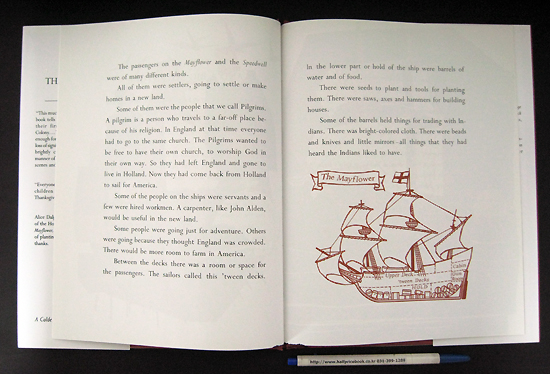 TH
"This
book tells
their first
Colony.
enough fo
low of sight
brightly c
manner of
scenes and
"Everyone
children
Thanksgiv
Alice Dalg
of the Ho
Mayflower
of plantin
thanks
A Calde
The passengers on the Mayflower and the Speedwell
were of many different kinds.
All of them were settlers, going to settle or make
homes in a new land.
Some of them were the people that we call Pilgrims.
A pilgrim is a person who travels to a far-off place be-
cause of his religion. In England at that time everyone
had to go to the same church. The Pilgrims wanted to
be free to have their own church, to worship God in
their own way. So they had left England and gone to
live in Holland. Now they had come back from Holland
to sail for America.
Some of the people on the ships were servants and a
few were hired workmen. A carpenter, like John Alden,
would be useful in the new land.
Some people were going just for adventure. Others
were going because they thought England was crowded.
There would be more room to farm in America.
Between the decks there was a room or space for
the passengers. The sailors called this 'tween decks.
In the lower part or hold of the ship were barrels of
water and of food.
There were seeds to plant and tools for planting
them. There were saws, axes and hammers for building
houses.
Some of the barrels held things for trading with In-
dians. There was bright-colored cloth. There were beads
and knives and little mirrors—all things that they had
heard the Indians liked to have.
The Mayflower
Upper Deck
Tween Decks
HOLD
Cabin
http://www.halfpricebook.co.kr 031-396-1399